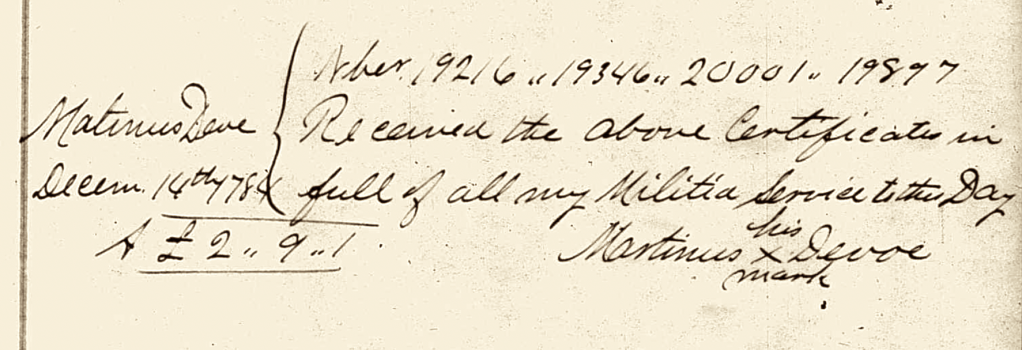 Nber. 19216 " 19346 " 20001 " 19897
Matinus Deve { Received the above Certificates in
Decem. 14th 1784 full of all my Militia Service to this Day
A £ 2 " 9 " 1
his
Martinus x Devoe
mark